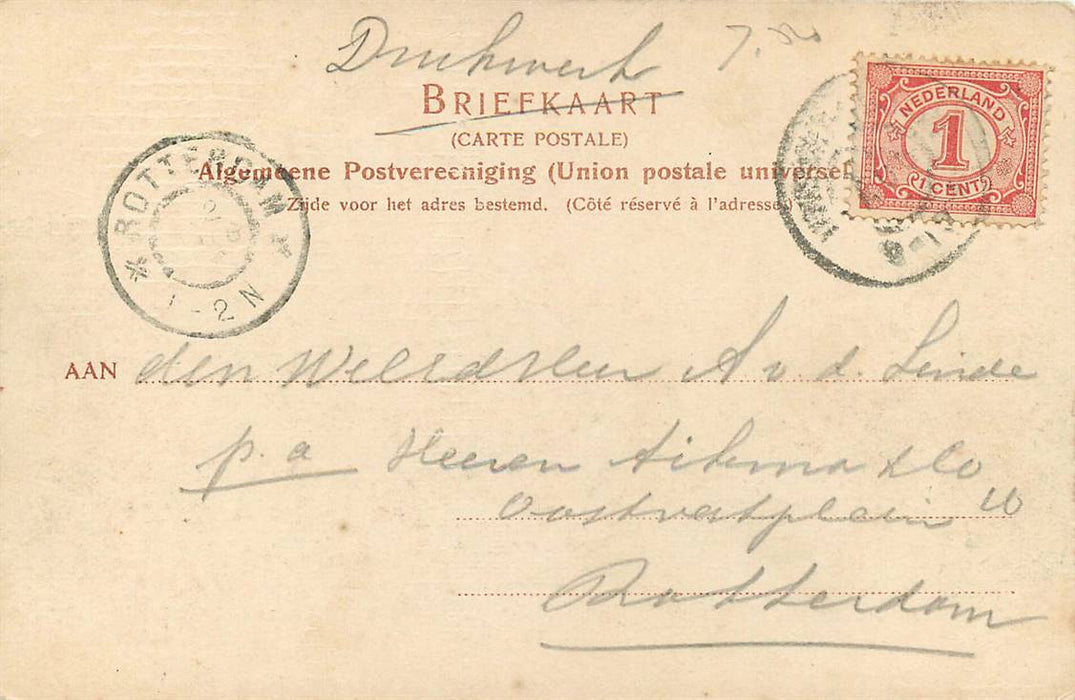 Drukwerk 7.50
BRIEFKAART
(CARTE POSTALE)
Algemeene Postvereeniging (Union postale universel
Zijde voor het adres bestemd. (Côté réservé à l'adresse.)
NEDERLAND
1
1 CENT
ROTTERDAM
1-2N
AAN den WelEdHeer A v. d. Linde
p. a Heeren Aikema & Co
Oostvestplein 16
Rotterdam